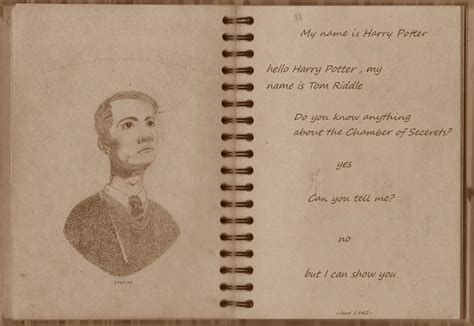 My name is Harry Potter
hello Harry Potter , my
name is Tom Riddle
Do you know anything
about the Chamber of Secerets?
yes
Can you tell me?
no
but I can show you